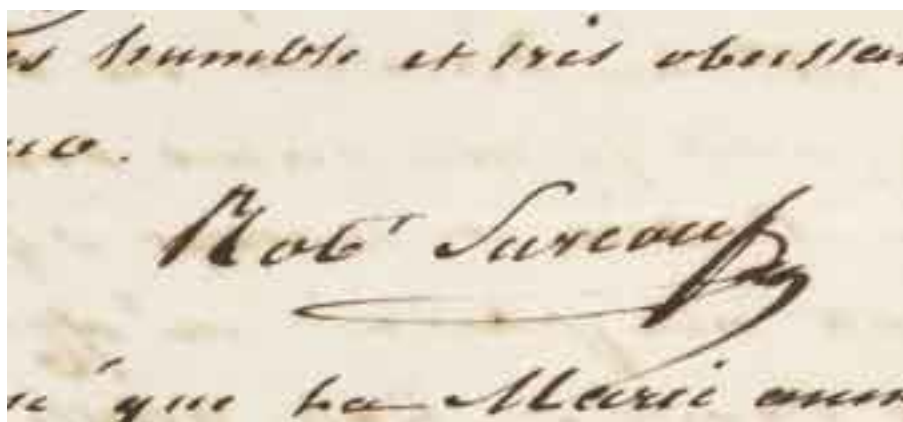 es humble et très obeissan
Robt Surcouf
é que la Marie ann